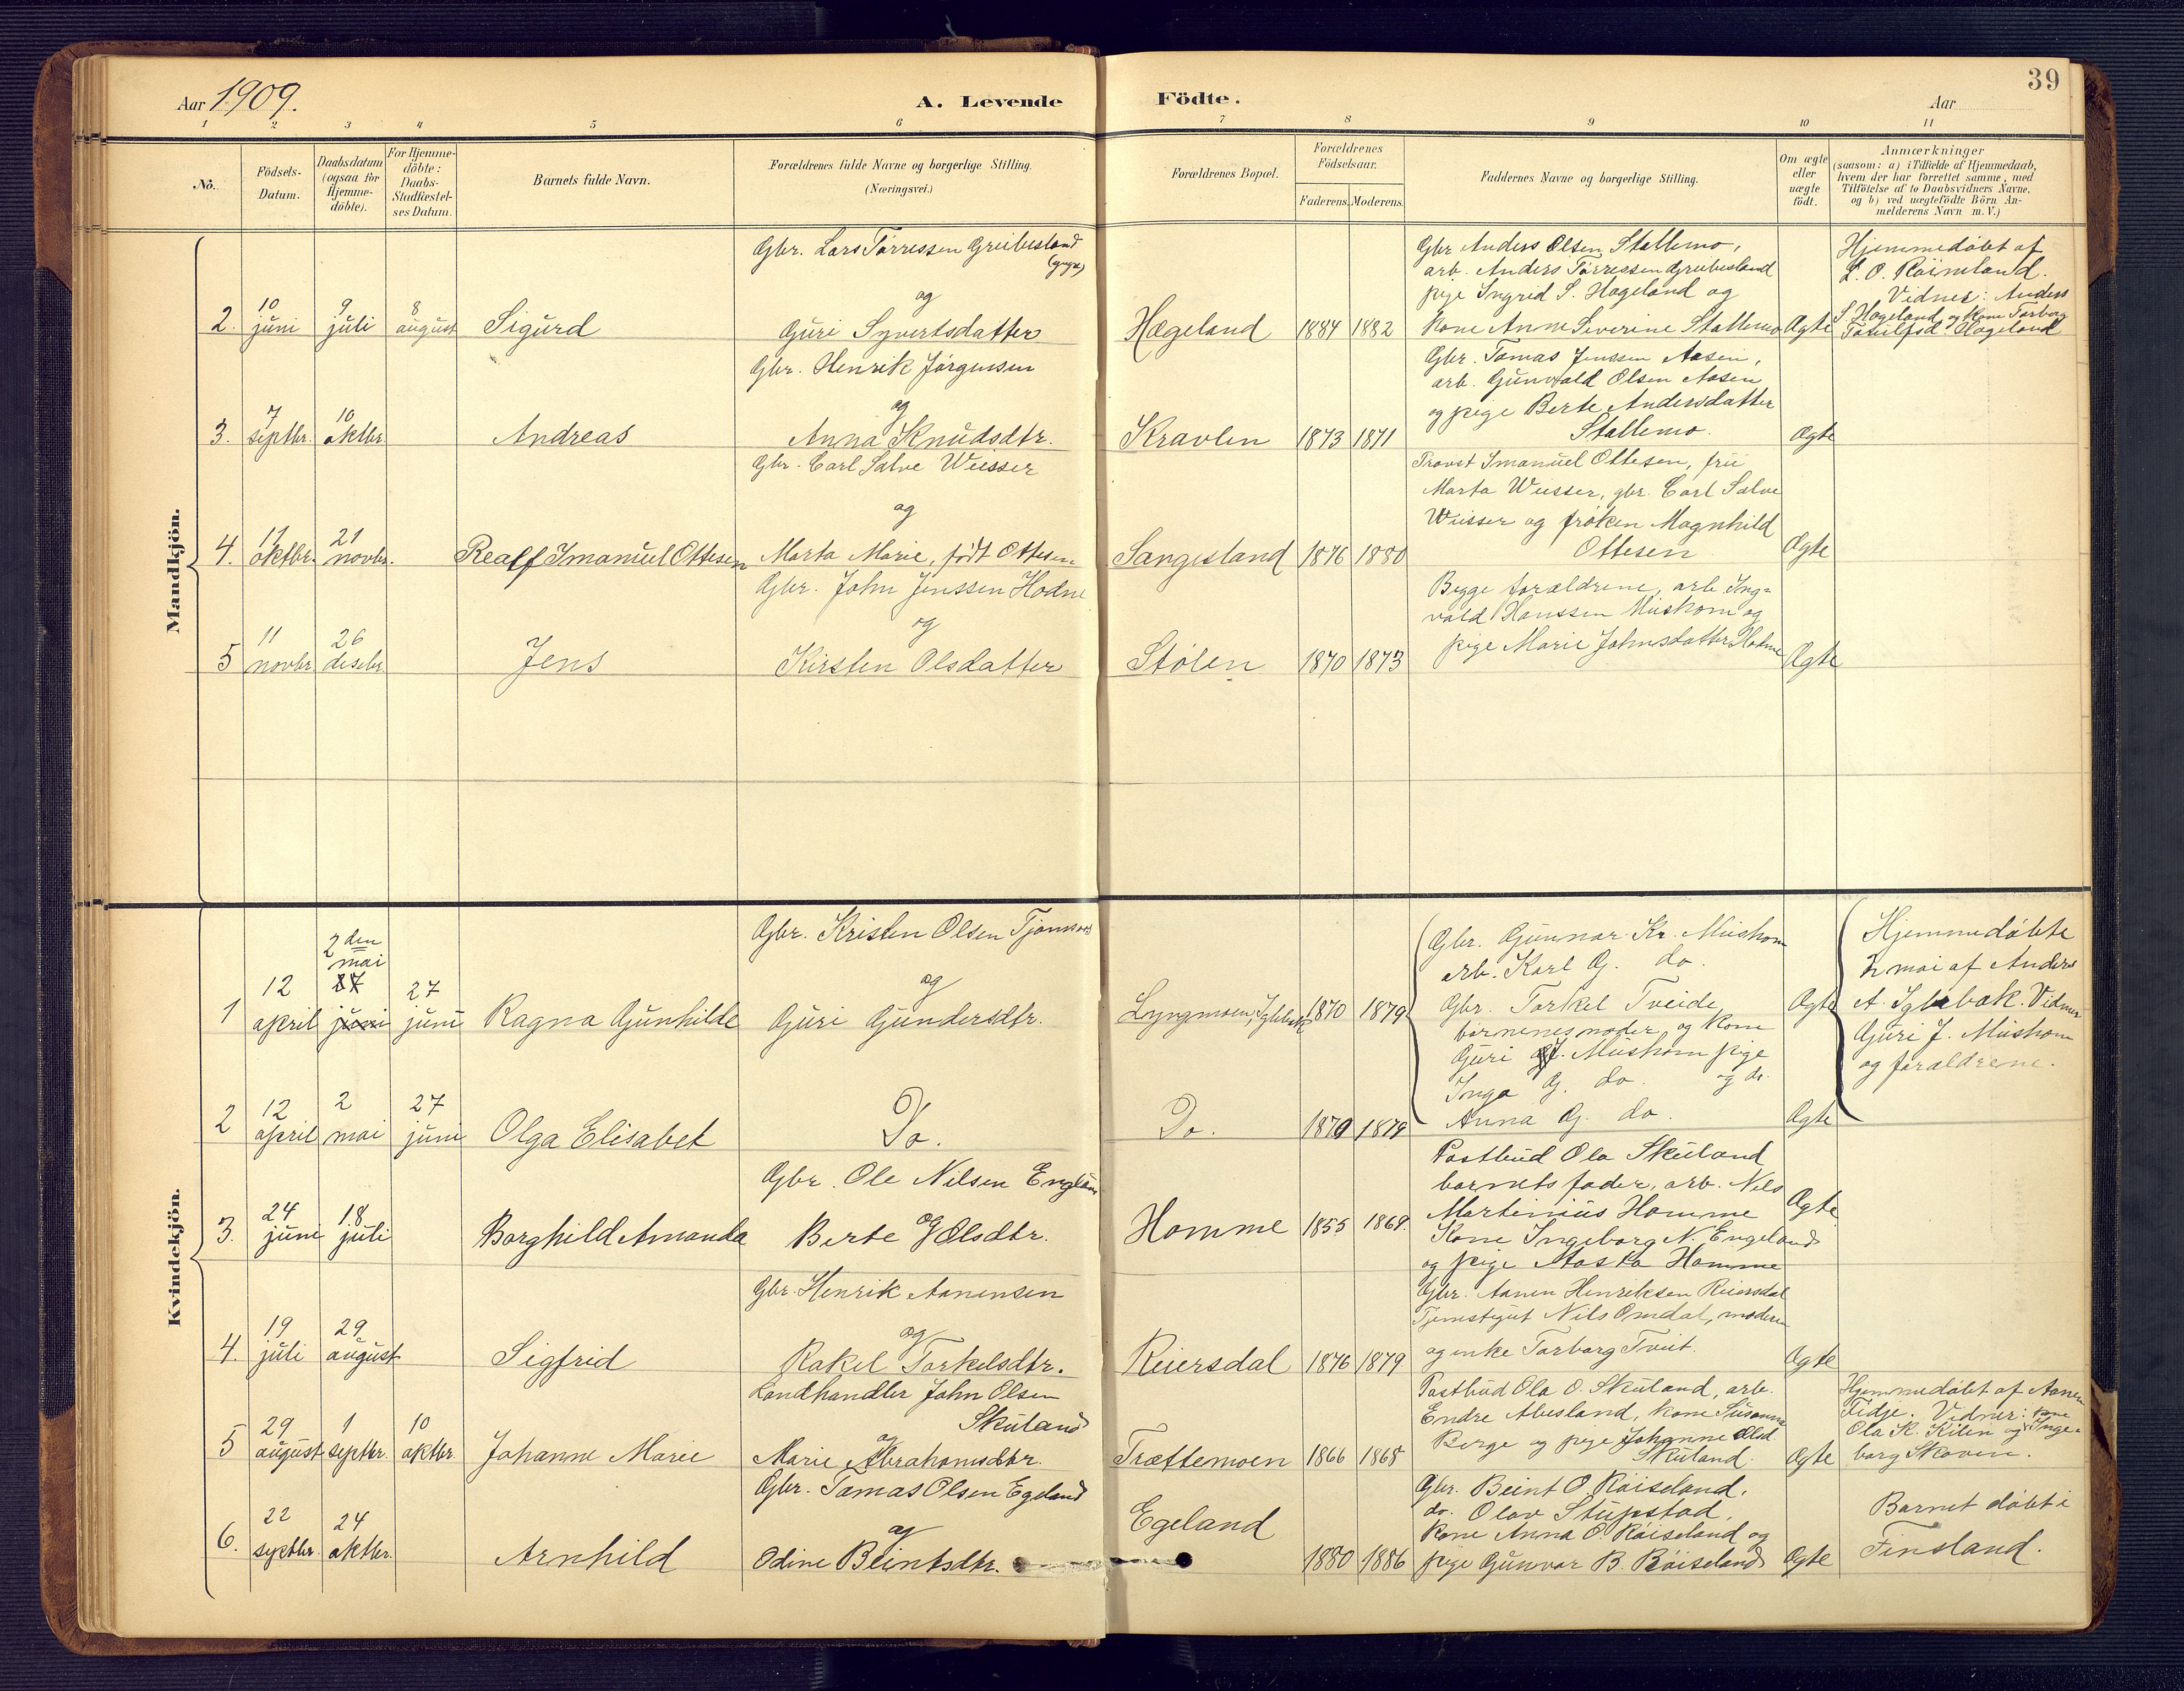 39
Aar 1909.
A. Levende Födte.
Aar
1 2 3 4 5 6 7 8 9 10 11
No.
Födsels-
Datum.
Daabsdatum
(ogsaa for
Hjemme-
døbte).
For Hjemme-
døbte:
Daabs-
Stadfæstel-
ses Datum.
Barnets fulde Navn.
Forældrenes fulde Navne og borgerlige Stilling.
(Næringsvei.)
Forældrenes Bopæl.
Forældrenes
Födselsaar.
Faderens. Moderens.
Faddernes Navne og borgerlige Stilling.
Om ægte
eller
uægte
født.
Anmærkninger
(saasom: a) i Tilfælde af Hjemmedaab,
hvem der har forrettet samme, med
Tilføielse af to Daabsvidners Navne.
og b) ved uægtefødte Börn An-
melderens Navn m. V.)
Mandkjön.
2.
10
juni
9
juli
8
august
Sigurd
Gbr. Lars Tørressen Greibesland
og
Guri Syvertsdatter
Hægeland
1884 1882
Gbr Anders Olsen Stallemo,
arb. Anders Tørressen Greibesland
pige Ingrid S. Hageland og
Kone Anne Severine Stallemo
Ægte
Hjemmedøbt af
L. O. Røineland.
Vidner: Anders
S. Hageland og Kone Tarborg
Hageland
3.
7
septbr.
10
oktbr
Andreas
Gbr. Henrik Jørgensen
og
Anna Knudsdtr.
Kravlen
1873 1871
Gbr. Tomas Jenssen Aasen,
arb. Gunvald Olsen Aasen
og pige Berte Andersdatter
Stallemo.
Ægte
4.
17
oktbr.
21
novbr.
Realf Imanuel Ottesen
Gbr. Carl Salve Weisser
og
Marta Marie, født Ottesen
Sangesland
1876 1880
Provst Imanuel Ottesen, frü
Marta Weisser, gbr. Carl Salve
Weisser og frøken Magnhild
Ottesen
Ægte
5
11
novbr
26
desebr
Jens
Gbr. John Jenssen Hodne
og
Kirsten Olsdatter
Stølen
1870 1873
Begge forældrene, arb. Ing-
vald Hanssen Müshom og
pige Marie Johnsdatter Hodne
Ægte
Kvindekjön.
1
12
april
2 den
mai
27
juni
27
juni
Ragna Gunhilde
Gbr. Kristen Olsen
og
Guri Gundersdtr.
Lyngmoen,
1870 1879
Gbr. Gunnar Kr. Müshom
arb. Karl G. do.
Gbr. Torkel Tveide,
børnenes moder, og kone
Guri Müshom pige
Inga G. do. og do.
Anna G. do.
Ægte
Hjemmedøbte
2 mai af Anders
A. Iglebæk. Vidner
Guri J. Müshom
og forældrene.
2
12
april
2
mai
27
juni
Olga Elisabet
Do.
Do.
1870 1879
Ægte
3.
24
juni
18
juli
Borghild Amanda
Gbr. Ole Nilsen Englan
og
Berte Olsdtr.
Homme
1855 1868.
Postbud Ola Skuland
barnets fader, arb. Nils
Martinius Homme
Kone Ingeborg N. Engeland
og pige Aasta Homme
Ægte
4.
19
juli
29
august
Sigfrid
Gbr. Henrik Aanensen
og
Rakel Torkelsdtr.
Reiersdal
1876 1879.
Gbr. Aanen Henriksen Reiersdal
Tjenstgut Nils Omdal, moderen
og enke Tarborg Tveit.
Ægte
5
29
august
1
septbr.
10
oktbr
Johanne Marie
Landhandler John Olsen
Skuland
og
Marie Abrahamsdtr.
Trættemoen
1866 1868
Postbud Ola O. Skuland, arb.
Endre Abusland, kone Susanne
Berge og pige Johanne Olsd
Skuland.
Ægte
Hjemmedøbt af Aanen
Fidje. Vidner: kone
Ola K. Kilen og Inge-
borg Skoven.
6.
22
septbr.
24
oktbr.
Arnhild
Gbr. Tomas Olsen Egeland
og
Odine Beintsdtr.
Egeland
1880 1886
Gbr. Beint O. Røiseland,
do. Olav Stupstad,
Kone Anna O. Røiseland og
pige Gunvor B. Røiseland
Ægte
Barnet døbt i
Finsland.